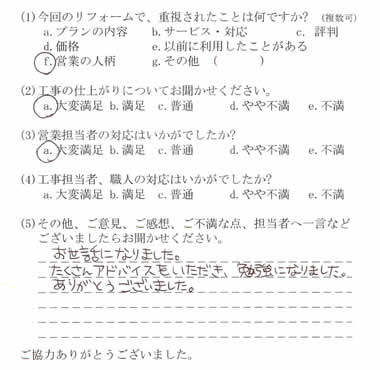 (1)今回のリフォームで、重視されたことは何ですか? (複数可)
a.プランの内容 b.サービス・対応 c. 評判
d.価格 e.以前に利用したことがある
f.営業の人柄 g.その他 ( )
(2)工事の仕上がりについてお聞かせください。
a.大変満足 b.満足 c.普通 d.やや不満 e.不満
(3)営業担当者の対応はいかがでしたか?
a.大変満足 b.満足 c.普通 d.やや不満 e.不満
(4)工事担当者、職人の対応はいかがでしたか?
a.大変満足 b.満足 c.普通 d.やや不満 e.不満
(5)その他、ご意見、ご感想、ご不満な点、担当者へ一言など
ございましたらお聞かせください。
お世話になりました。
たくさんアドバイスをいただき、勉強になりました。
ありがとうございました。
ご協力ありがとうございました。